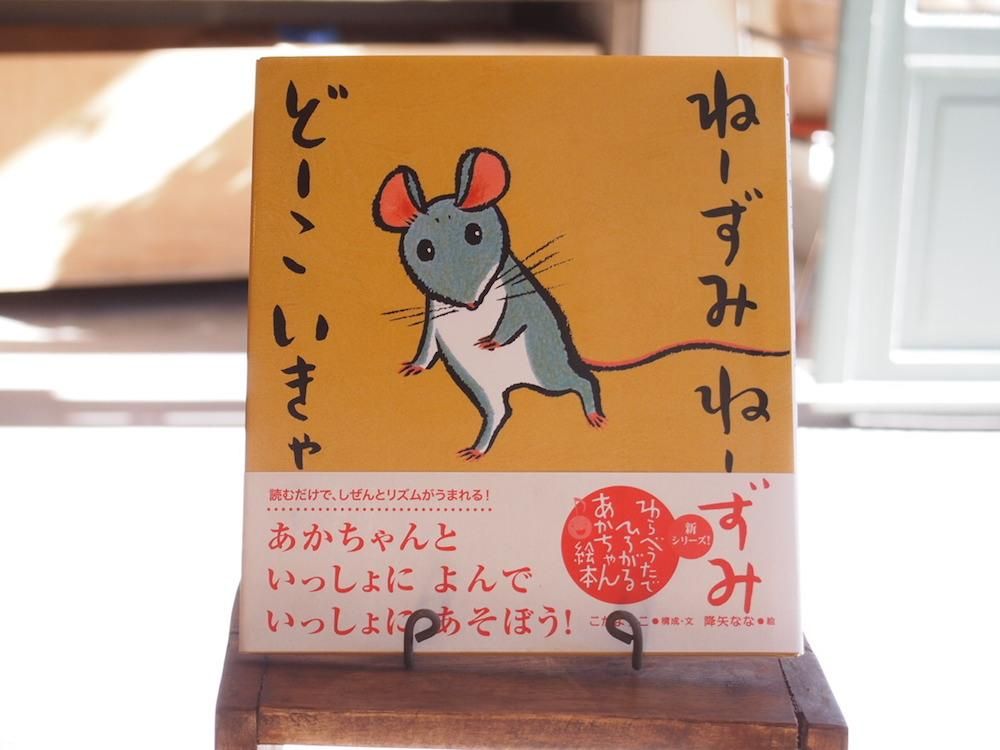 ねーずみ ねーずみ
どーこ いきゃ
読むだけで、しぜんとリズムがうまれる!
あかちゃんと
いっしょに よんで
いっしょに あそぼう!
わらべうたで
ひろがる
あかちゃん
絵本
新
シリーズ!
構成・文 降矢なな●絵